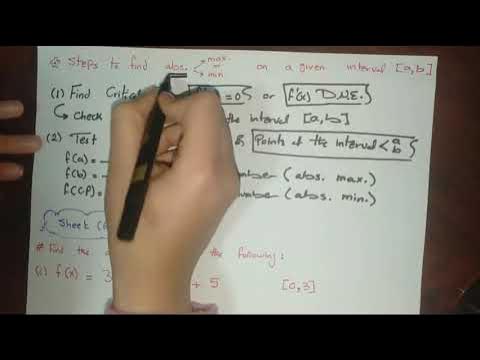 Steps to find abs. max. or min on a given interval [a,b]
(1) Find Critical = 0 or f'(x) D.N.E.
↳ Check the interval [a,b]
(2) Test & Points of the interval < a b
f(a) =
f(b) = number (abs. max.)
f(C.P) = number (abs. min.)
Sheet
# Find the the following:
(1) f(x) = 3 + 5 [0,3]